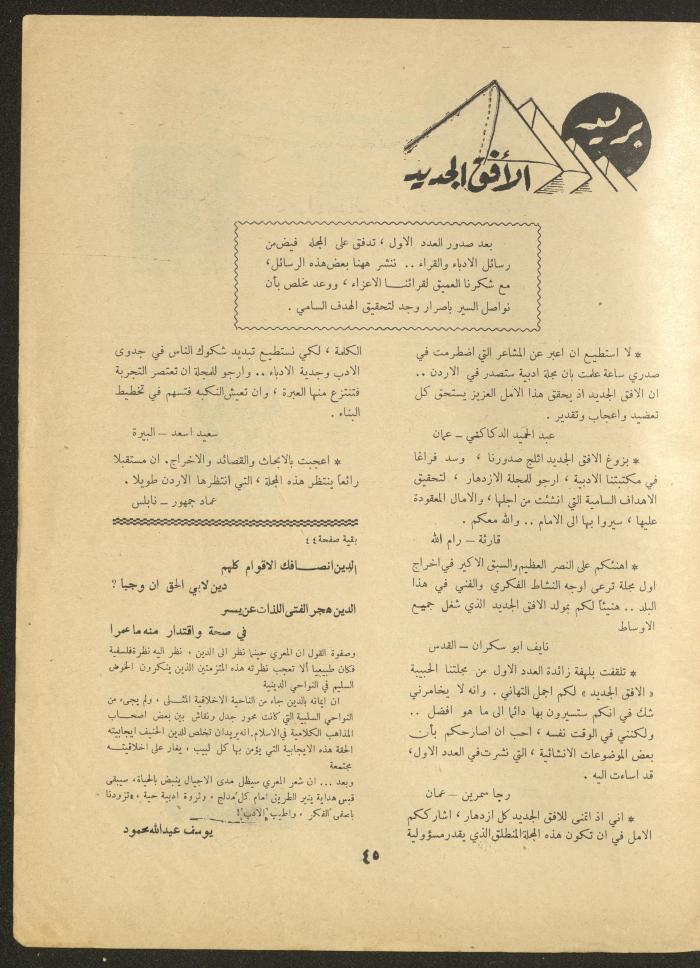 بريد
الأفق الجديد
بعد صدور العدد الاول ، تدفق على المجله فيض من
رسائل الادباء والقراء .. ننشر ههنا بعض هذه الرسائل ،
مع شكرنا العميق لقرائنا الاعزاء ، ووعد مخلص بأن
نواصل السير باصرار وجد لتحقيق الهدف السامي .
* لا استطيع ان اعبر عن المشاعر التي اضطرمت في
صدري ساعة علمت بان مجلة ادبية ستصدر في الاردن ..
ان الافق الجديد اذ يحقق هذا الامل العزيز يستحق كل
تعضيد واعجاب وتقدير .
عبد الحميد الدكاكشي – عمان
* بزوغ الافق الجديد اثلج صدورنا ، وسد فراغا
في مكتبتنا الادبية ، ارجو للمجلة الازدهار ، لتحقيق
الاهداف السامية التي انشئت من اجلها ، والامال المعقودة
عليها ، سيروا بها الى الامام .. والله معكم .
قارئة – رام الله
* اهنئكم على النصر العظيم والسبق الاكبر في اخراج
اول مجلة ترعى اوجه النشاط الفكري والفني في هذا
البلد .. هنيئاً لكم بمولد الافق الجديد الذي شغل جميع
الاوساط
نايف ابو سكران – القدس
* تلقفت بلهفة زائدة العدد الاول من مجلتنا الحبيبة
« الافق الجديد » لكم اجمل التهاني . وانه لا يخامرني
شك في انكم ستسيرون بها دائما الى ما هو افضل ..
ولكنني في الوقت نفسه ، احب ان اصارحكم بأن
بعض الموضوعات الانشائية ، التي نشرت في العدد الاول ،
قد اساءت اليه .
رجا سمرين – عمان
* اني اذ اتمنى للافق الجديد كل ازدهار ، اشارككم
الامل في ان تكون هذه المجلة المنطلق الذي يقدر مسؤولية
الكلمة ، لكي نستطيع تبديد شكوك الناس في جدوى
الادب وجدية الادباء .. وارجو للمجلة ان تعتصر التجربة
فتنتزع منها العبرة ، وان تعيش النكبه فتسهم في تخطيط
البناء .
سعيد اسعد – البيرة
* اعجبت بالابحاث والقصائد والاخراج . ان مستقبلا
رائعاً ينتظر هذه المجلة ، التي انتظرها الاردن طويلا .
عماد جمهور – نابلس
بقية صفحة ٤٤
الدين انصافك الاقوام كلهم
دين لابي الحق ان وجبا ؟
الدين هجر الفتى اللذات عن يسر
في صحة واقتدار منه ما عمرا
وصفوة القول ان المعري حينما نظر الى الدين ، نظر اليه نظرة فلسفية
فكان طبيعيا ألا تعجب نظرته هذه المتزمتين الذين ينكرون الخوض
السليم في النواحي الدينية
ان ايمانه بالدين جاء من الناحية الاخلاقية المثلى ، ولم يجىء من
النواحي السلبية التي كانت محور جدل ونقاش بين بعض اصحاب
المذاهب الكلامية في الاسلام . انه يريدان تخلص للدين الحنيف ايجابيته
الحقة هذه الايجابية التي يؤمن بها كل لبيب ، يغار على اخلاقيته
مجتمعة
وبعد ... ان شعر المعري سيظل مدى الاجيال ينبض بالحياة ، سيبقى
قبس هداية ينير الطريق امام كل مدلج ، وثروة ادبية حية ، «تزودنا
باصفى الفكر ، واطيب الادب !
يوسف عبدالله محمود
٤٥